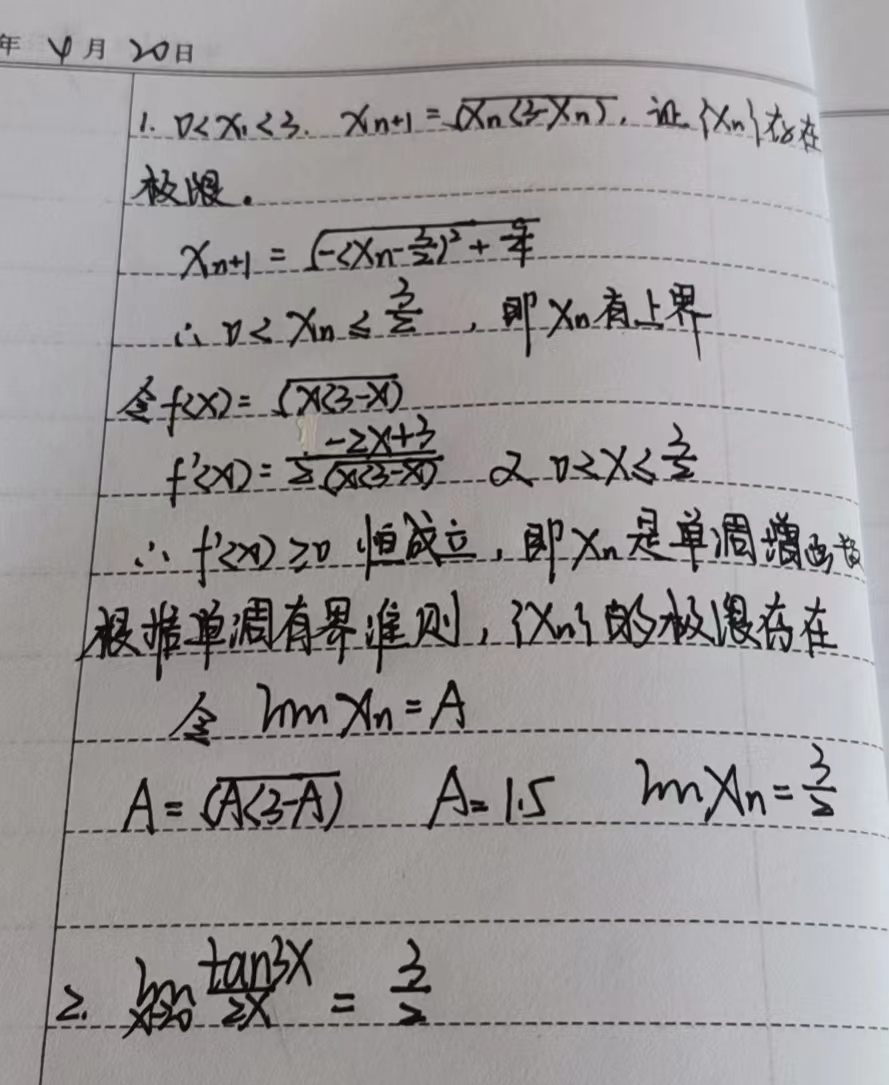 年 4月 20日
1. 0<x₁<3. xₙ₊₁=√(xₙ(3-xₙ)), 证{xₙ}存在
极限.
xₙ₊₁=√(-(xₙ-3/2)²+9/4)
∴ 0<xₙ≤3/2, 即xₙ有上界
令f(x)=√(x(3-x))
f'(x)=(-2x+3)/(2√(x(3-x))) 又 0<x≤3/2
∴ f'(x)≥0 恒成立, 即xₙ是单调增函数
根据单调有界准则, {xₙ}的极限存在
令 lim xₙ=A
A=√(A(3-A)) A=1.5 lim xₙ=3/2
2. lim x→0 tan3x/2x = 3/2